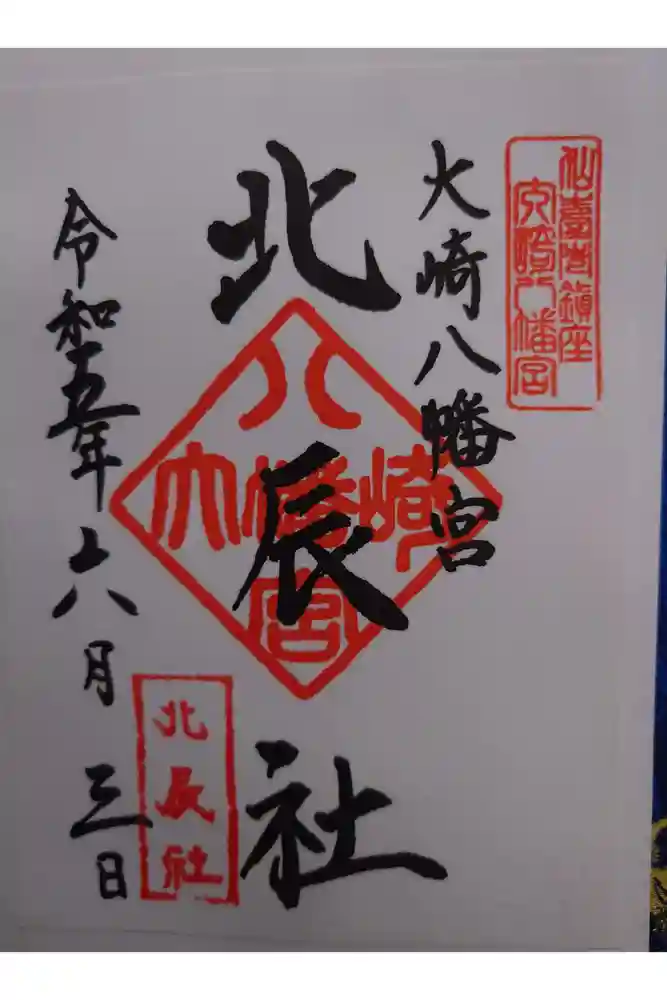 仙臺巷鎮座
大崎八幡宮
大崎八幡宮
北辰社
八
大幡崎
宮
令和五年六月三日
北辰社